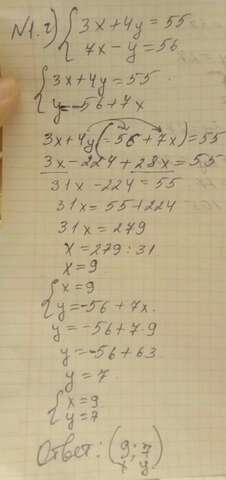 N1. г) { 3x + 4y = 55
7x - y = 56
{ 3x + 4y = 55
y = -56 + 7x
3x + 4y(-56 + 7x) = 55
3x - 224 + 28x = 55
31x - 224 = 55
31x = 55 + 224
31x = 279
x = 279 : 31
x = 9
{ x = 9
y = -56 + 7x.
y = -56 + 7·9
y = -56 + 63
y = 7
{ x = 9
y = 7
Ответ: (9; 7)
x y